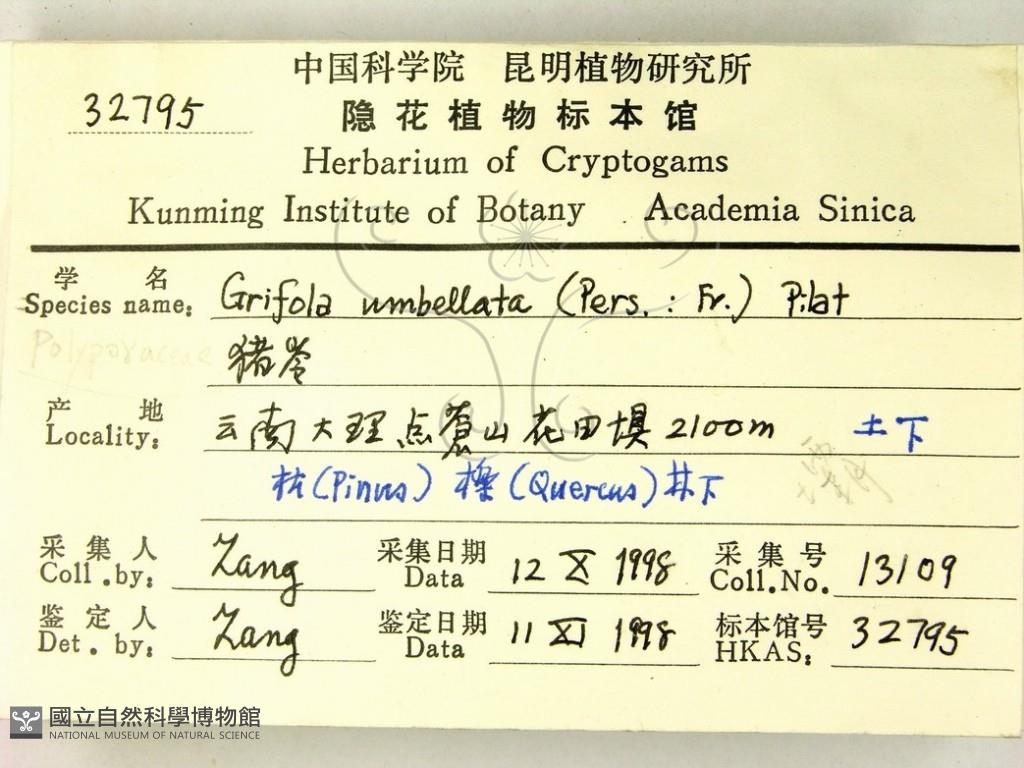 中国科学院 昆明植物研究所
32795
隐花植物标本馆
Herbarium of Cryptogams
Kunming Institute of Botany Academia Sinica
学名
Species name: Grifola umbellata (Pers. : Fr.) Pilat
Polyporaceae
猪苓
产地
Locality: 云南大理点蒼山花田垻 2100m 土下
(Pinus) 櫟(Quercus)林下
采集人 Coll.by: Zang 采集日期 Data 12 X 1998 采集号 Coll.No. 13109
鉴定人 Det. by: Zang 鉴定日期 Data 11 XI 1998 标本馆号 HKAS: 32795
國立自然科學博物館
NATIONAL MUSEUM OF NATURAL SCIENCE